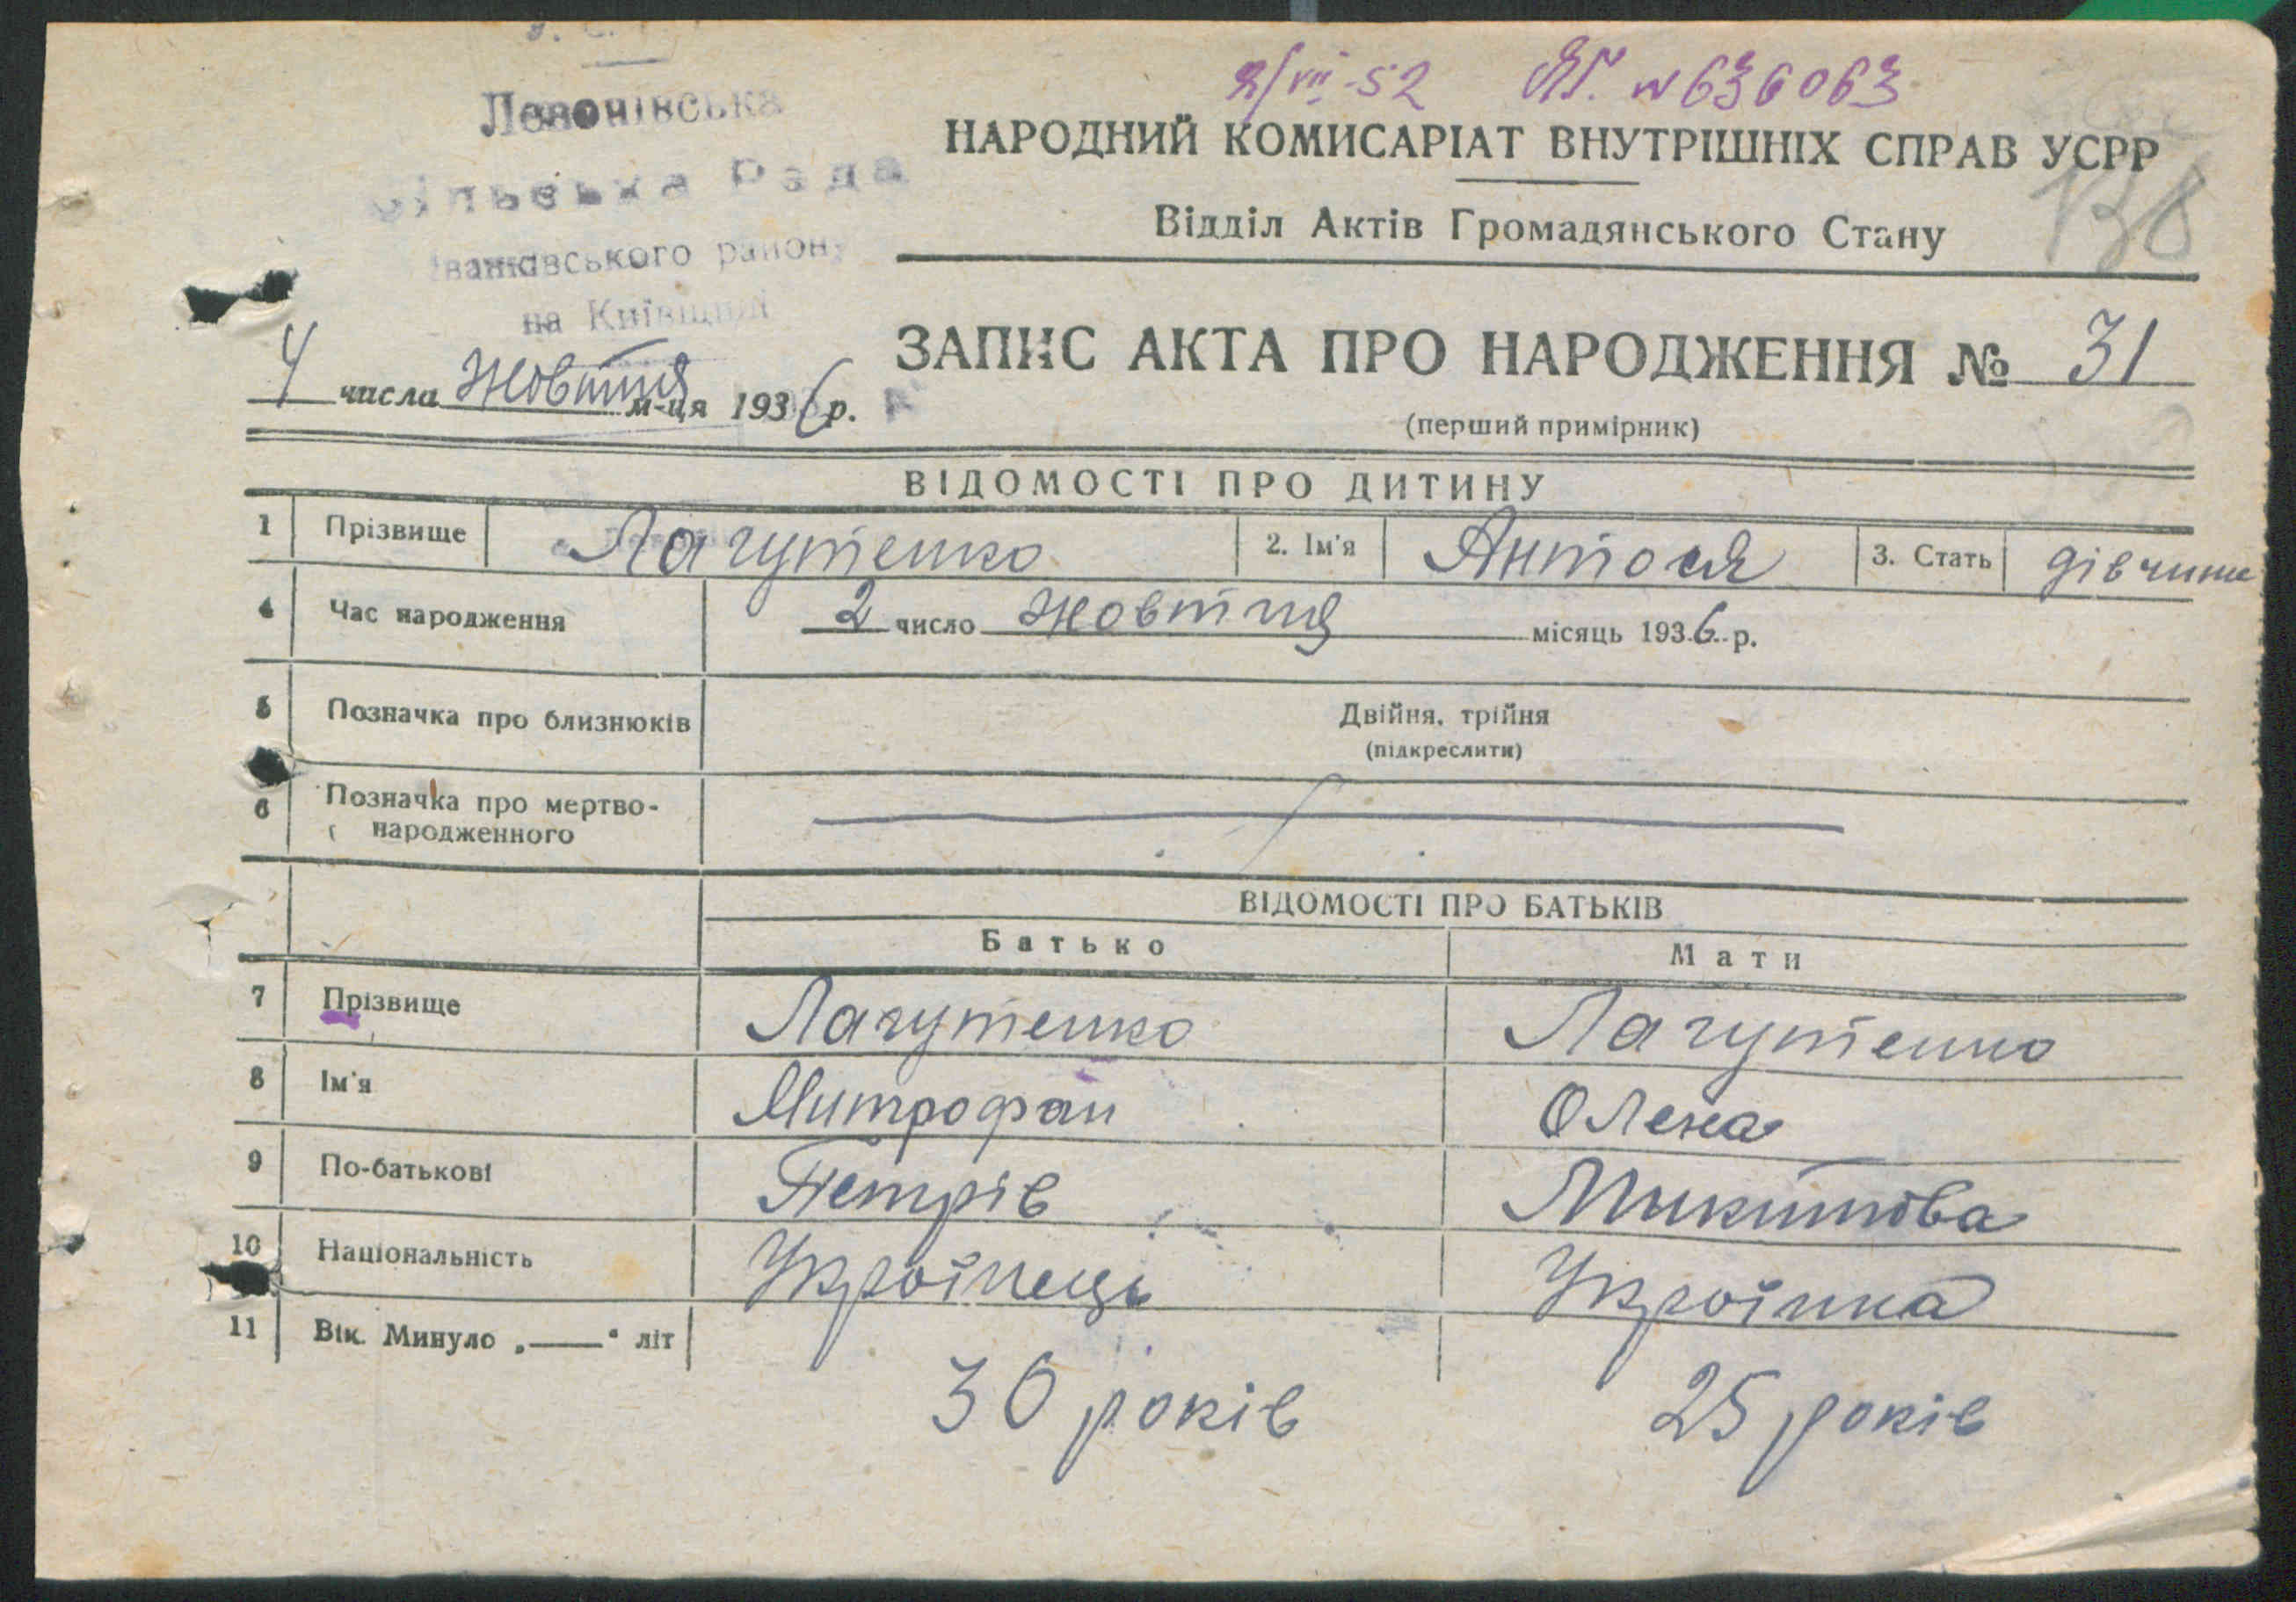 ЯГ. N 636063
НАРОДНИЙ КОМИСАРІАТ ВНУТРІШНІХ СПРАВ УСРР
138
Відділ Актів Громадянського Стану
Рада
району
на Київщині
ЗАПИС АКТА ПРО НАРОДЖЕННЯ № 31
4 числа Жовтня м-ця 1936 р.
(перший примірник)
ВІДОМОСТІ ПРО ДИТИНУ
1 Прізвище Лагутенко 2. Ім'я Антося 3. Стать дівчина
4 Час народження 2 число жовтня місяць 1936 р.
5 Позначка про близнюків Двійня, трійня
(підкреслити)
6 Позначка про мертво-
народженного
ВІДОМОСТІ ПРО БАТЬКІВ
Батько Мати
7 Прізвище Лагутенко Лагутенко
8 Ім'я Митрофан Олена
9 По-батькові Петрів Микитова
10 Національність Українець Українка
11 Вік. Минуло „——“ літ
30 років 25 років